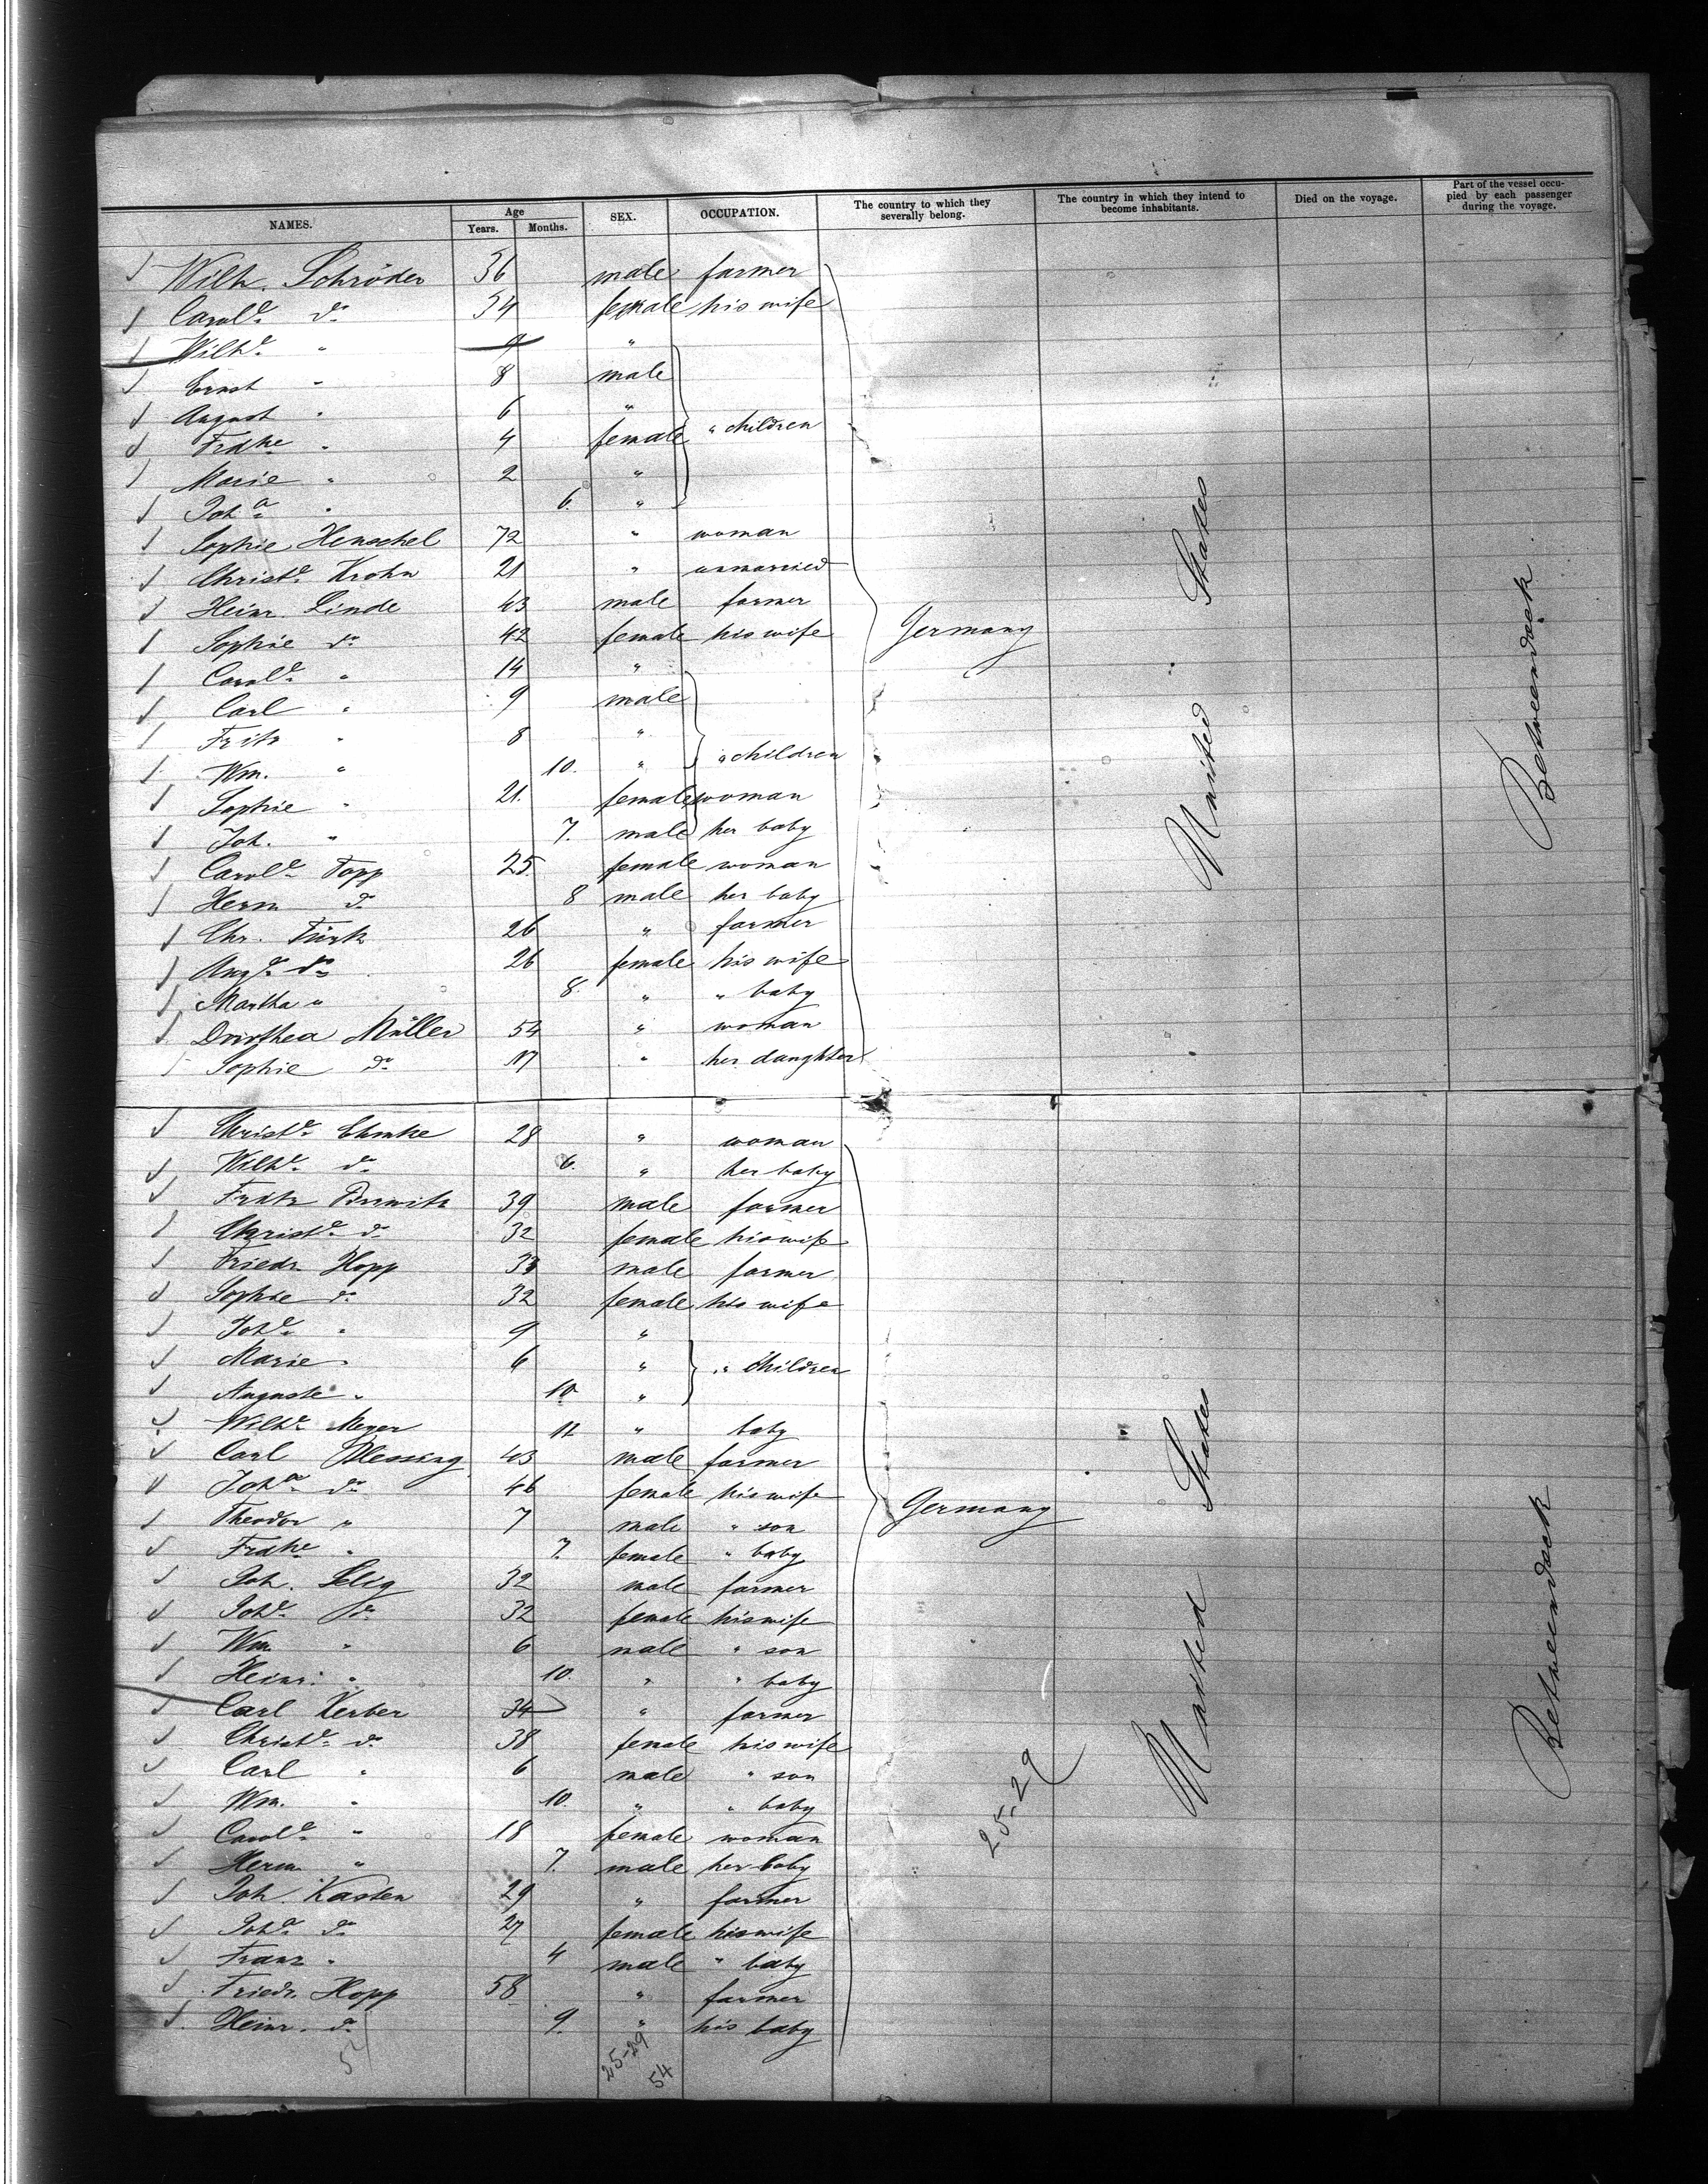 NAMES. Age Years. Months. SEX. OCCUPATION. The country to which they severally belong. The country in which they intend to become inhabitants. Died on the voyage. Part of the vessel occupied by each passenger during the voyage.
Wilh. Schröder 36 male farmer
Carole do 34 female his wife
Wilhe " 9 "
Ernst " 8 male
August " 6 "
Frdke " 4 female " children
Marie " 2 "
Joha " 6. "
Sophie Henschel 72 " woman
Christe Krohn 21 " unmarried
Heinr. Linde 43 male farmer
Sophie do 42 female his wife
Carole " 14 "
Carl " 9 male
Fritz " 8 "
Wm. " 10. " " children
Sophie " 21. female woman
Joh. " 7. male her baby
Carole Topp 25 female woman
Herm do 8 male her baby
Chr. Türk 26 " farmer
Auge do 26 female his wife
Martha " 8. " " baby
Dorothea Müller 54 " woman
Sophie do 17 " her daughter
Germany
United States
Betweendeck
Christe 28 " woman
Wilhe do 6. " her baby
Fritz 39 male farmer
Christe do 32 female his wife
Friedr. Hopp 33 male farmer
Sophie do 32 female his wife
Johe " 9 "
Marie " 6 " " children
Auguste " 10 "
Wilhe Meyer 11 " baby
Carl 43 male farmer
Joha do 46 female his wife
Theodor " 7 male " son
Frdke " 7. female " baby
Joh. Selig 32 male farmer
Johe do 32 female his wife
Wm. " 6 male " son
Heinr. " 10. " " baby
Carl Kerber 34 " farmer
Christe do 38 female his wife
Carl " 6 male " son
Wm. " 10. " " baby
Carole " 18 female woman
Herm " 7. male her baby
Joh Kasten 29 " farmer
Joha do 27 female his wife
Franz " 4 male " baby
Friedr. Hopp 58 " farmer
Heinr. do 9. " his baby
Germany
United States
Betweendeck
25-29
54
25-29
54